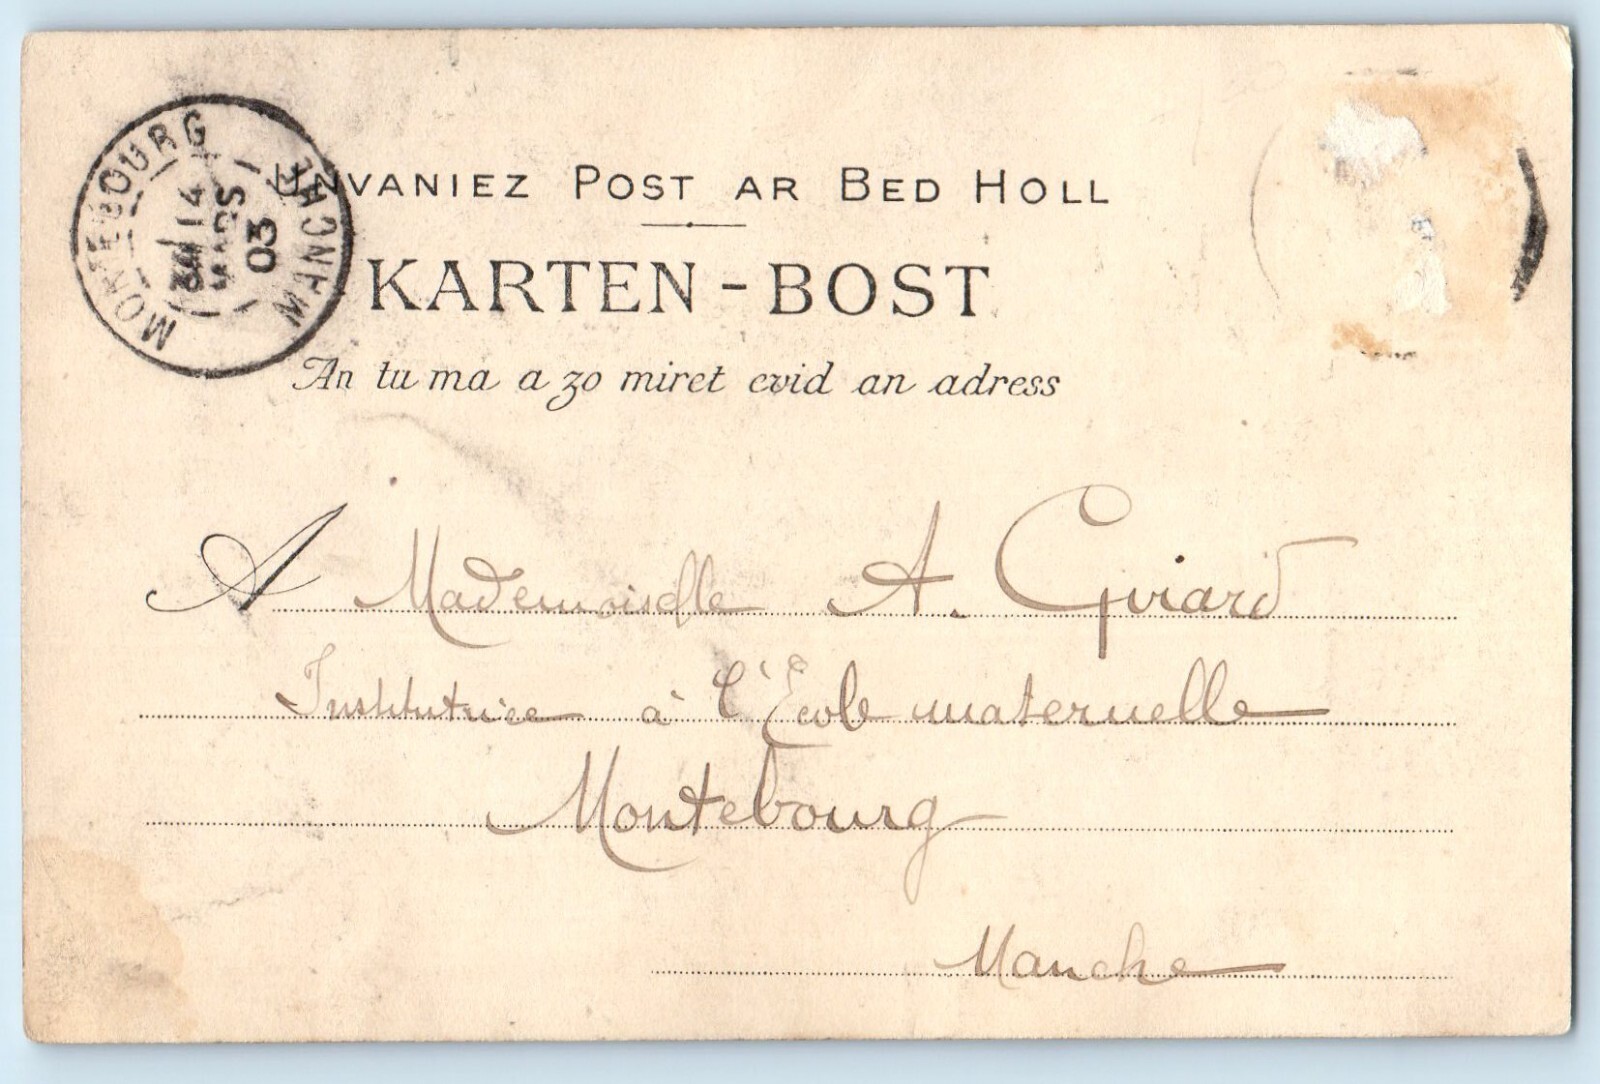 MONTEBOURG
MANCHE
14
MARS
03
UNVANIEZ POST AR BED HOLL
KARTEN-BOST
An tu ma a zo miret evid an adress
A Mademoiselle A. Guiard
Institutrice à l'École maternelle
Montebourg
Manche